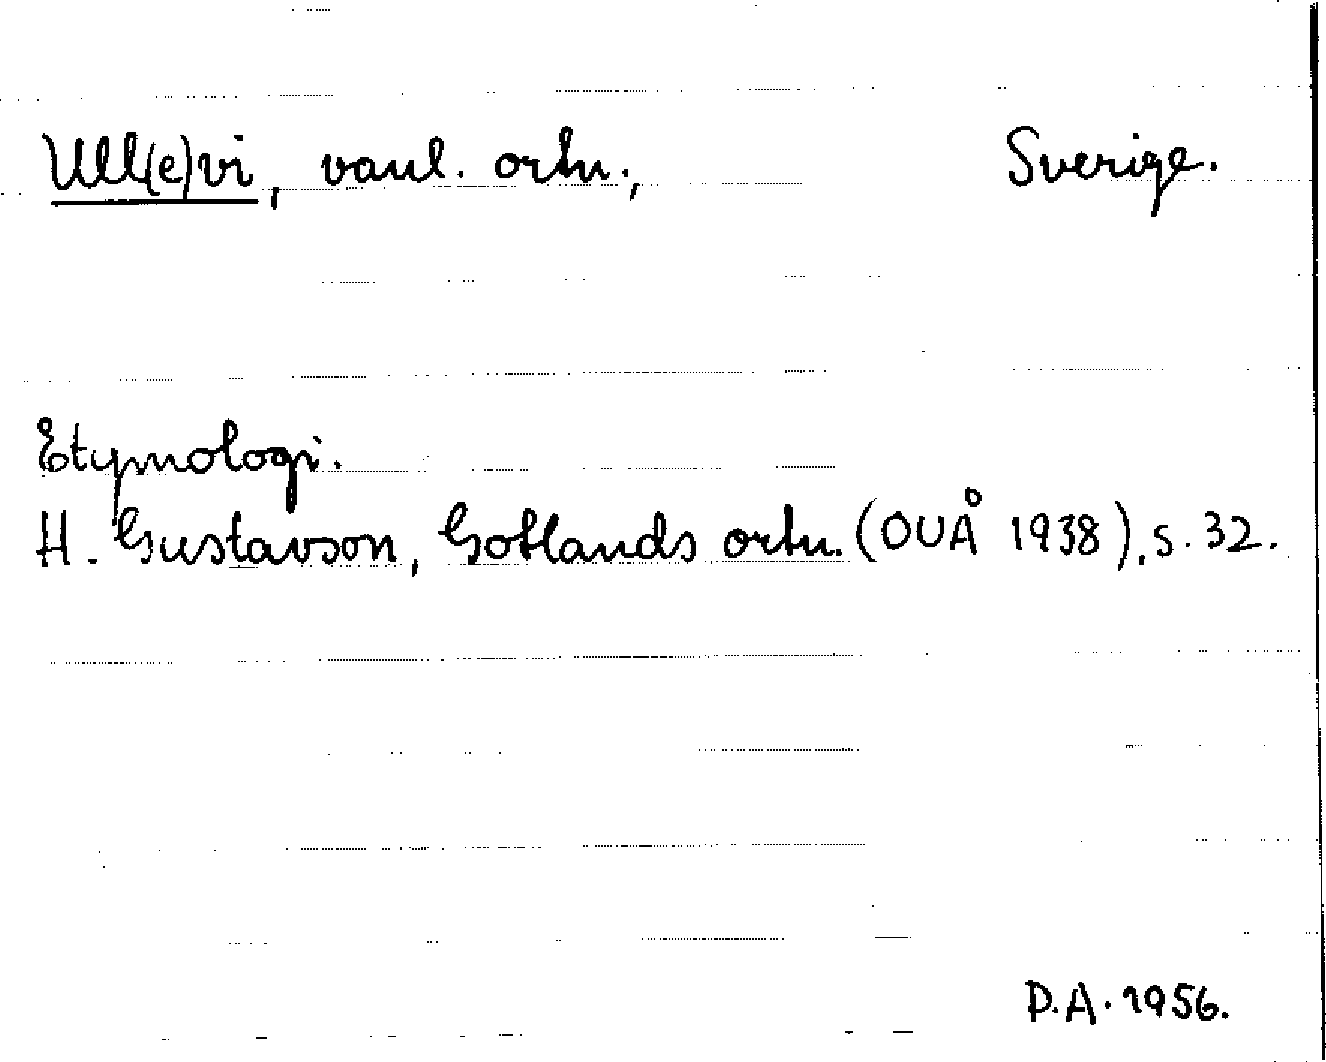 Ull(e)vi, vanl. ortn., Sverige.
Etymologi.
H. Gustavson, Gotlands ortn. (OUÅ 1938), s. 32.
D.A. 1956.